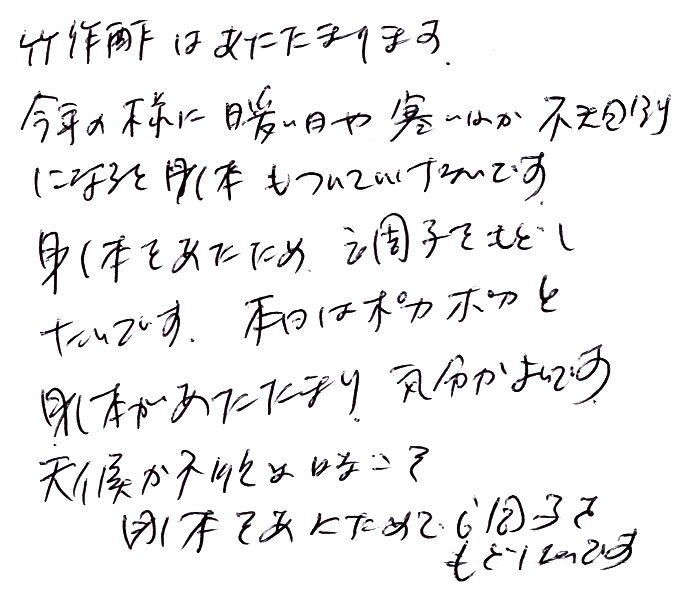 竹作酢はあたたまります。
今年の様に暖い日や寒い日が不規則
になると身体もついていけないです
身体をあたため、調子をもどし
たいです。本日はポカポカと
身体があたたまり、気分がよいです
天候が不順な時こそ
身体をあたためて調子を
もどしたいです